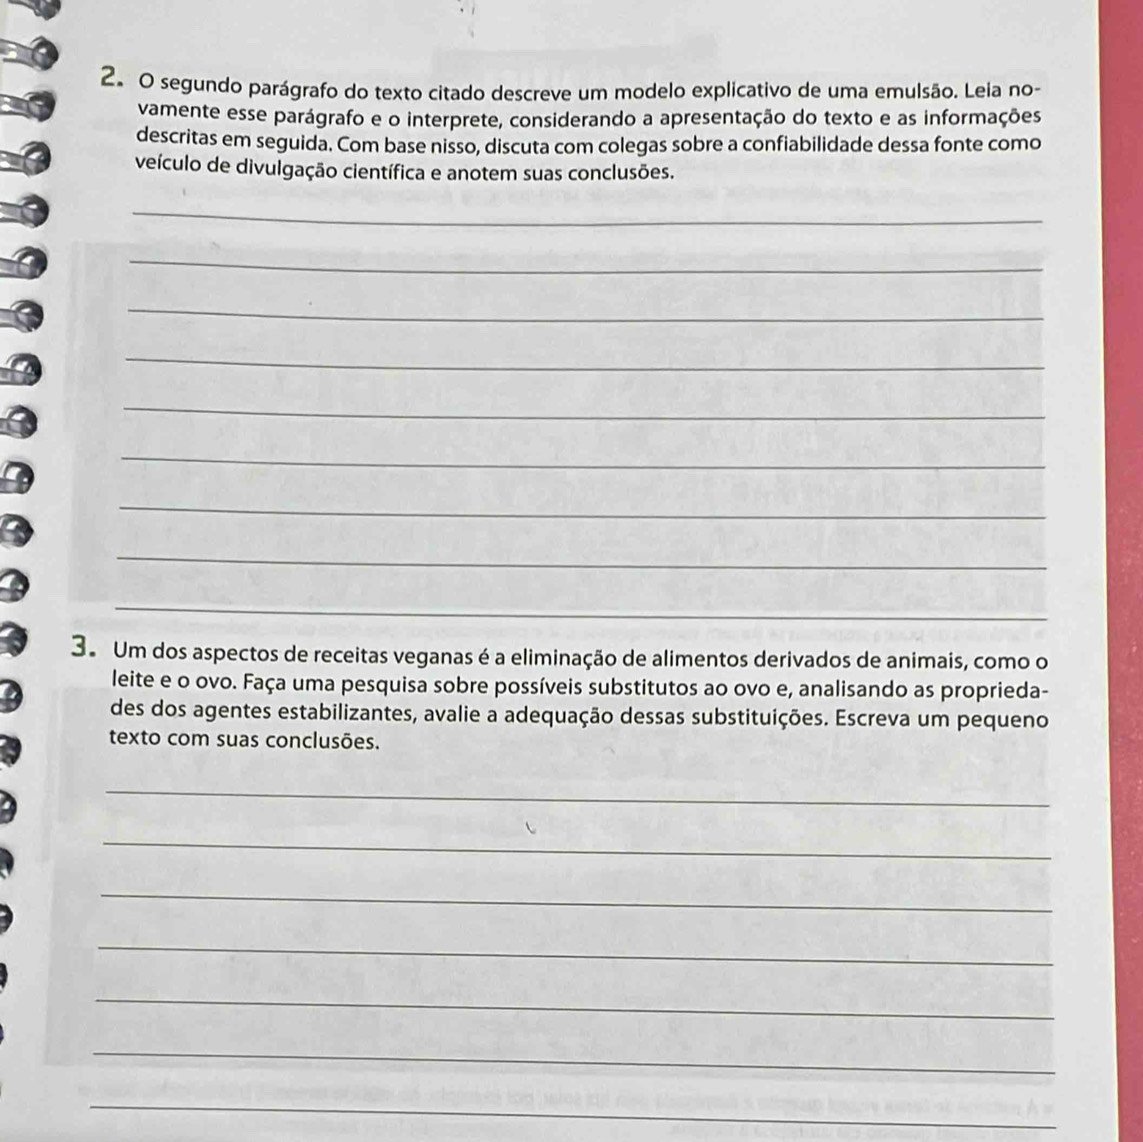 2. O segundo parágrafo do texto citado descreve um modelo explicativo de uma emulsão. Leia no-
vamente esse parágrafo e o interprete, considerando a apresentação do texto e as informações
descritas em seguida. Com base nisso, discuta com colegas sobre a confiabilidade dessa fonte como
veículo de divulgação científica e anotem suas conclusões.
3. Um dos aspectos de receitas veganas é a eliminação de alimentos derivados de animais, como o
leite e o ovo. Faça uma pesquisa sobre possíveis substitutos ao ovo e, analisando as proprieda-
des dos agentes estabilizantes, avalie a adequação dessas substituições. Escreva um pequeno
texto com suas conclusões.